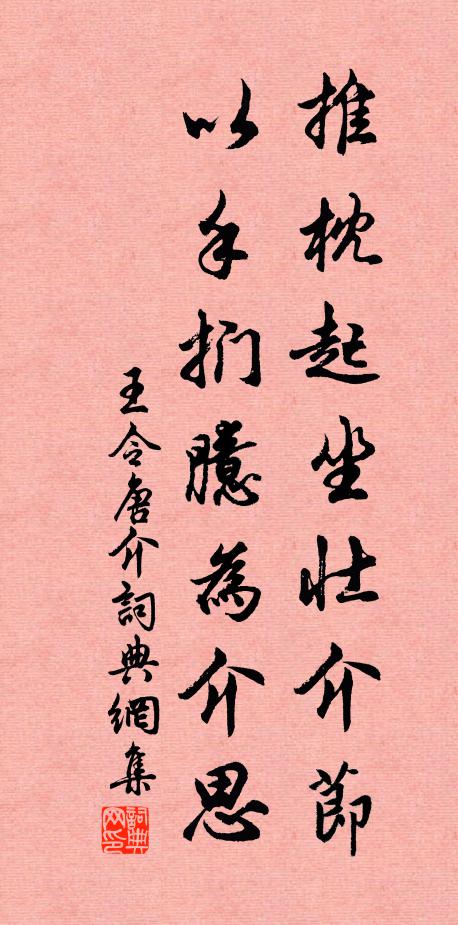 推枕起坐壯介節
以手捫臆為介思
王令唐介詞典網集
詞典网印